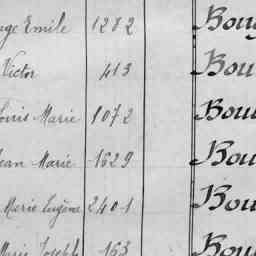 age Emile 1282 Boug
Victor 413 Bou
Louis Marie 1072 Bou
Jean Marie 1629 Bou
Marie Eugène 2401 Bou
Marie Joseph 163 Bou